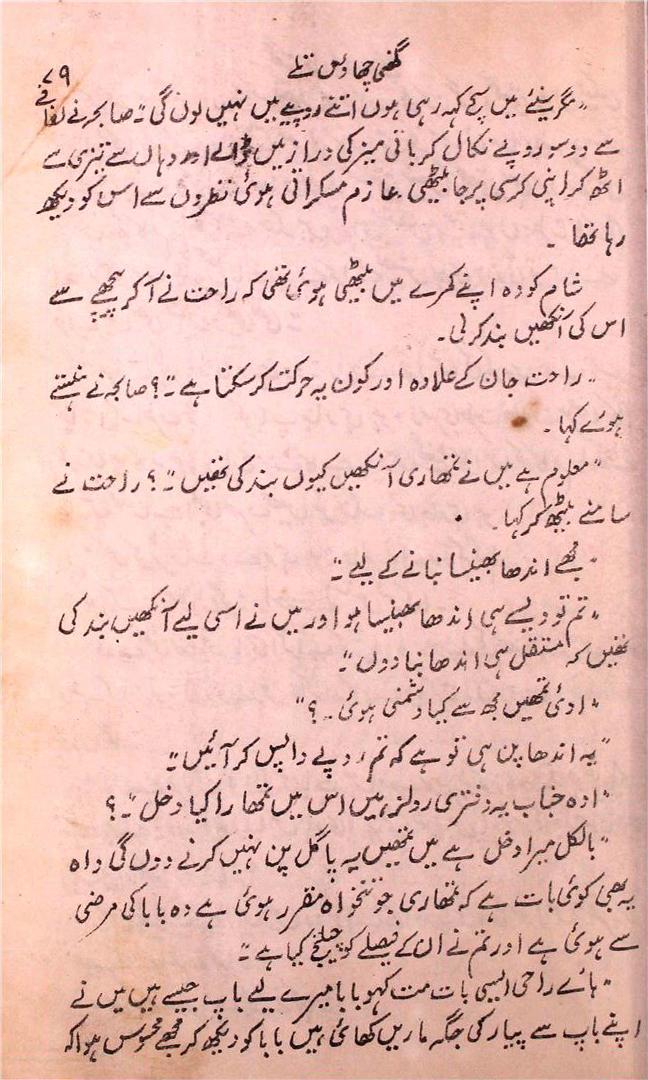 گھنی چھاؤں تلے
۷۹
"مگر سنئے میں سچ کہہ رہی ہوں اتنے روپیے میں نہیں لوں گی" صابحہ نے لفافے
سے دو سو روپے نکال کر باقی میز کی دراز میں ڈالے اور وہاں سے تیزی سے
اٹھ کر اپنی کرسی پر جا بیٹھی عازم مسکراتی ہوئی نظروں سے اس کو دیکھ
رہا تھا۔
شام کو وہ اپنے کمرے میں بیٹھی ہوئی تھی کہ راحت نے آ کر پیچھے سے
اس کی آنکھیں بند کر لی۔
"راحت جان کے علاوہ اور کون یہ حرکت کر سکتا ہے"؟ صابحہ نے ہنستے
ہوئے کہا۔
"معلوم ہے میں نے تمھاری آنکھیں کیوں بند کی تھیں"؟ راحت نے
سامنے بیٹھ کر کہا۔
"مجھے اندھا بھینسا بنانے کے لیے"
"تم تو ویسے ہی اندھا بھینسا ہو اور میں نے اسی لیے آنکھیں بند کی
تھیں کہ مستقل ہی اندھا بنا دوں"۔
"اوئی تمھیں مجھ سے کیا دشمنی ہوئی۔؟"
"یہ اندھا پن ہی تو ہے کہ تم روپے واپس کر آئیں"
"اوہ جناب یہ دفتری رولز ہیں اس میں تمھارا کیا دخل"؟
"بالکل میرا دخل ہے میں تمھیں یہ پاگل پن نہیں کرنے دوں گی واہ
یہ بھی کوئی بات ہے کہ تمھاری جو تنخواہ مقرر ہوئی ہے وہ بابا کی مرضی
سے ہوئی ہے اور تم نے ان کے فیصلے کو چیلنج کیا ہے"۔
"ہائے راحی ایسی بات مت کہو بابا میرے لیے باپ جیسے ہیں میں نے
اپنے باپ سے پیار کی جگہ ماریں کھائی ہیں بابا کو دیکھ کر مجھے محسوس ہوا کہ